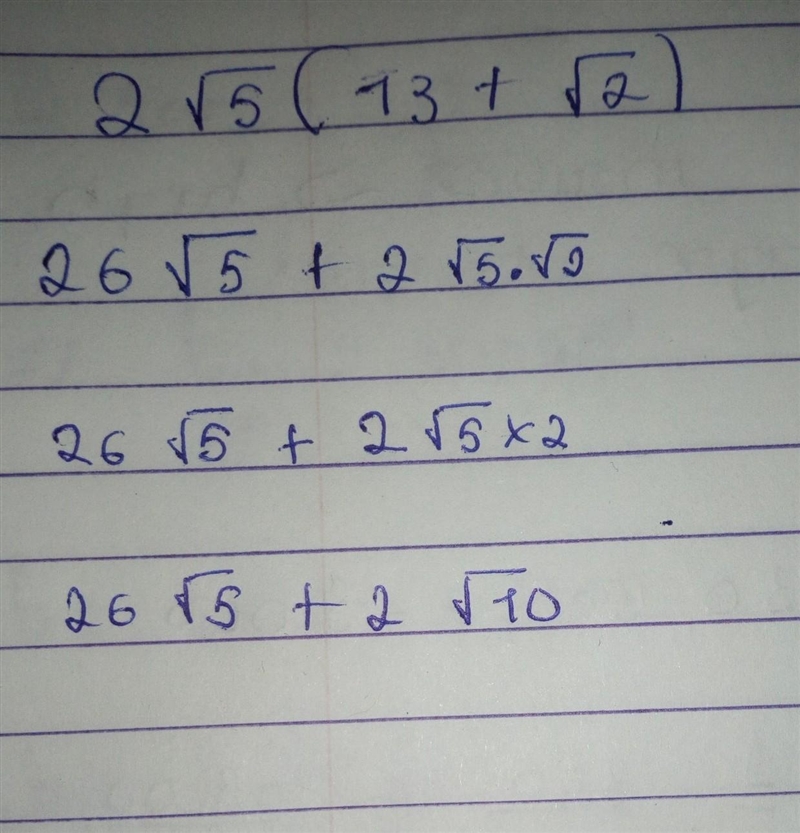 2 √5 ( 13 + √2 )
26 √5 + 2 √5 . √2
26 √5 + 2 √5 × 2
26 √5 + 2 √10